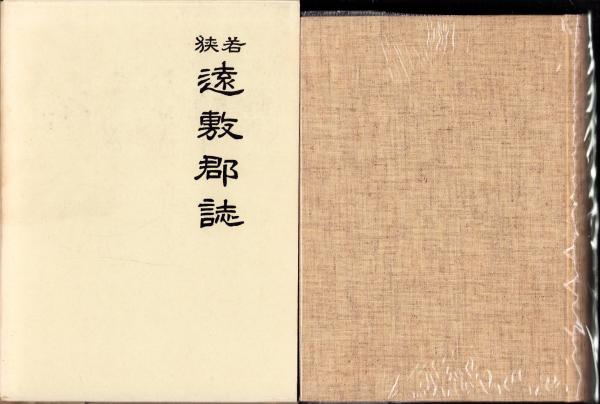 若狭
遠敷郡誌